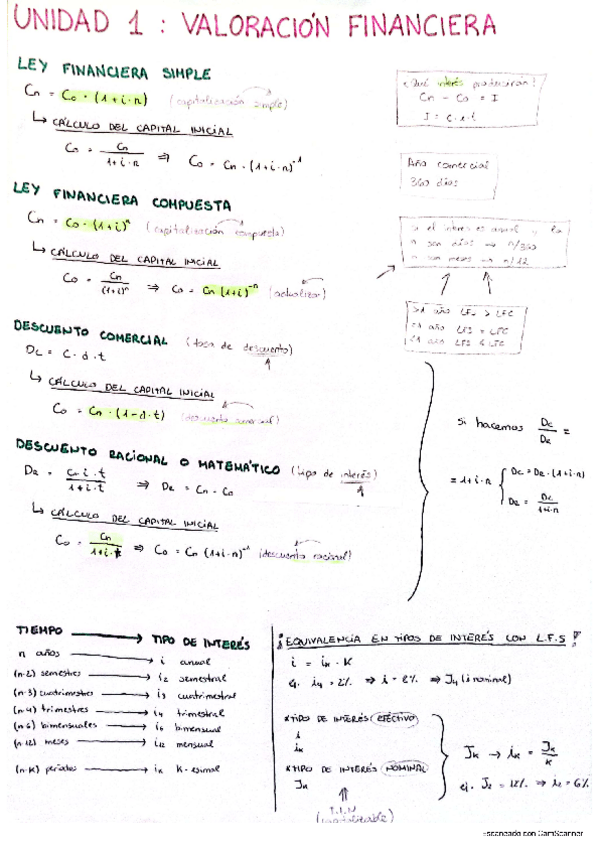 UNIDAD 1 : VALORACIÓN FINANCIERA
LEY FINANCIERA SIMPLE
Cn = Co · (1+i·n) (capitalización simple)
↳ CÁLCULO DEL CAPITAL INICIAL
Co = Cn / 1+i·n ⇒ Co = Cn · (1+i·n)⁻¹
¿Qué interés producirán?
Cn - Co = I
I = C·i·t
Año comercial
360 días
LEY FINANCIERA COMPUESTA
Cn = Co · (1+i)ⁿ (capitalización compuesta)
↳ CÁLCULO DEL CAPITAL INICIAL
Co = Cn / (1+i)ⁿ ⇒ Co = Cn (1+i)⁻ⁿ (actualizar)
si el interés es anual y la
n son días → n/360
n son meses → n/12
>1 año LFS > LFC
=1 año LFS = LFC
<1 año LFS
DESCUENTO COMERCIAL (tasa de descuento)
Dc = C·d·t
↳ CÁLCULO DEL CAPITAL INICIAL
Co = Cn · (1-d·t) (descuento comercial)
DESCUENTO RACIONAL O MATEMÁTICO (tipo de interés)
DR = Cn·i·t / 1+i·t ⇒ DR = Cn - Co
↳ CÁLCULO DEL CAPITAL INICIAL
Co = Cn / 1+i·t ⇒ Co = Cn (1+i·n)⁻¹ (descuento racional)
si hacemos Dc / DR =
= 1+i·n { Dc = DR · (1+i·n)
DR = Dc / 1+i·n
TIEMPO → TIPO DE INTERÉS
n años → i anual
(n·2) semestres → i2 semestral
(n·3) cuatrimestres → i3 cuatrimestral
(n·4) trimestres → i4 trimestral
(n·6) bimensuales → i6 bimensual
(n·12) meses → i12 mensual
(n·K) periodos → iK K-esimal
¡EQUIVALENCIA EN TIPOS DE INTERÉS CON L.F.S!
i = iK · K
ej. i4 = 2% ⇒ i = 8% ⇒ J4 (i nominal)
*TIPO DE INTERÉS EFECTIVO
i
iK
*TIPO DE INTERÉS NOMINAL
JK
⇑
T.I.N
(capitalizable)
JK → iK = JK / K
ej. J2 = 12% ⇒ i2 = 6%
Escaneado con CamScanner